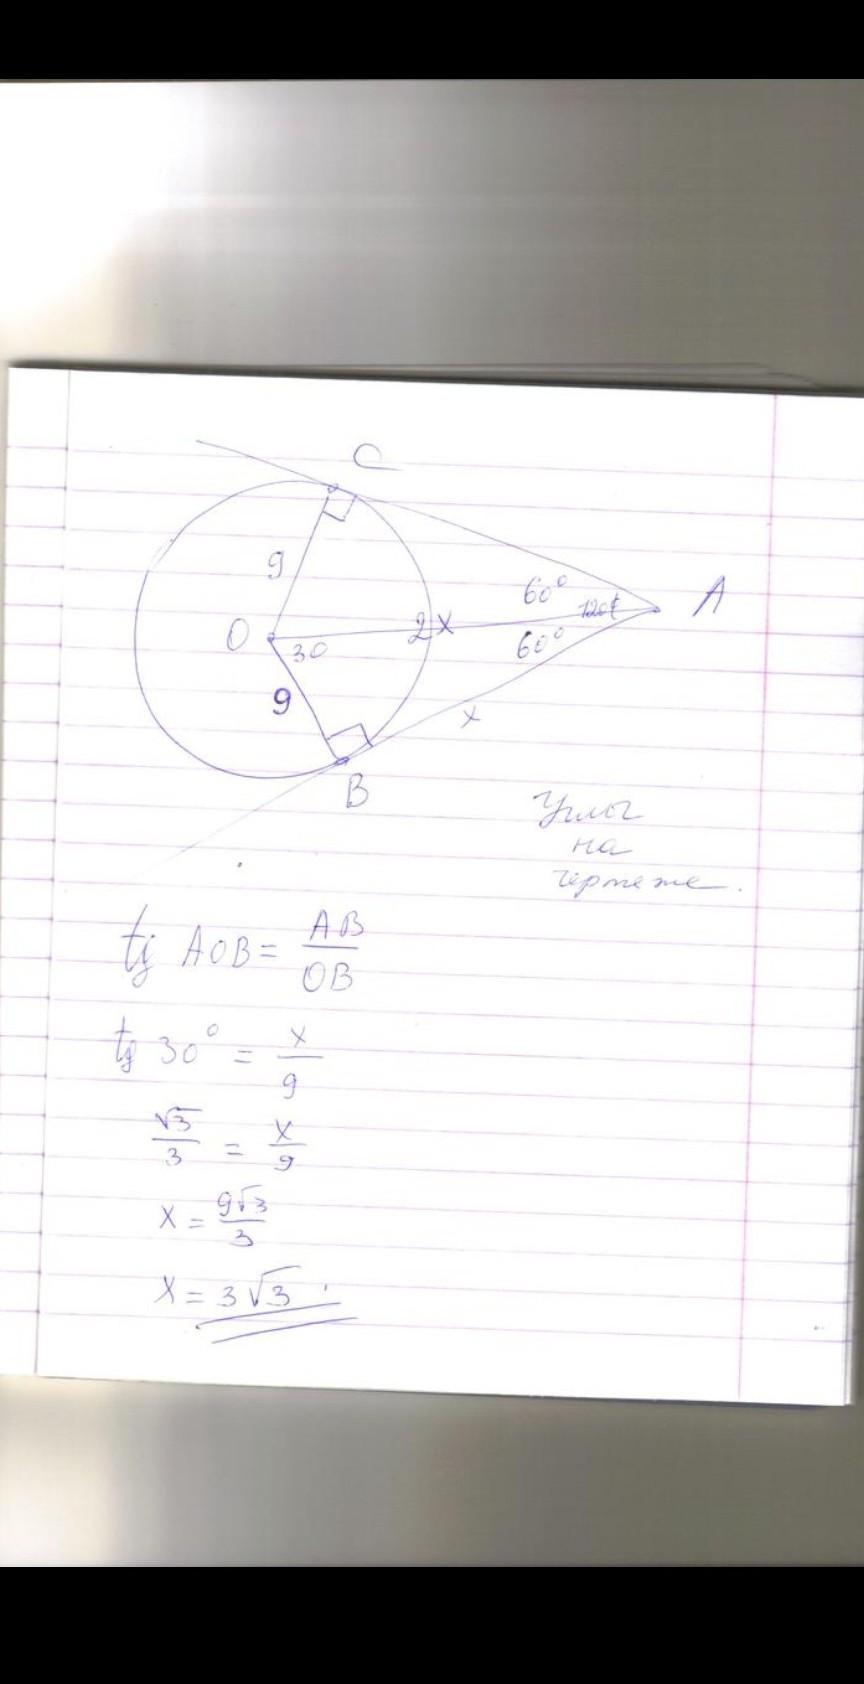 C
9
60°
120°
A
O
2x
30
60°
9
x
B
Углы
на
чертеже.
tg AOB = AB/OB
tg 30° = x/9
√3/3 = x/9
x = 9√3/3
x = 3√3